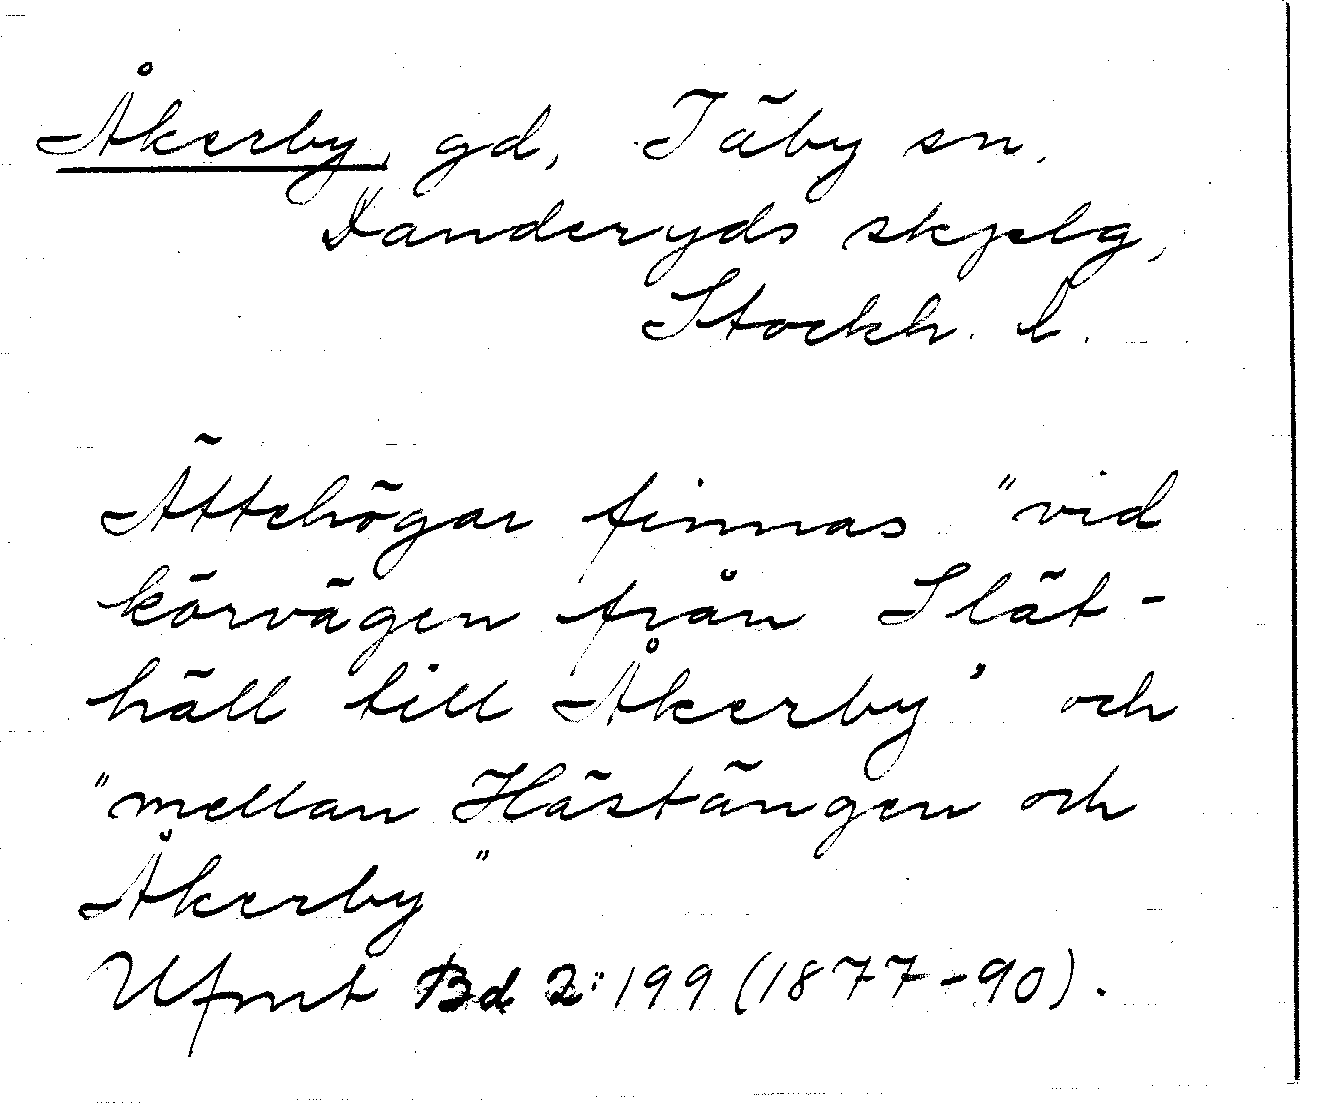 Åkerby, gd, Täby sn,
Danderyds skjelg,
Stockh. l.
Ättehögar finnas "vid
körvägen från Slät-
häll till Åkerby" och
"mellan Hästängen och
Åkerby"
Ufmt Bd 2:199 (1877-90).